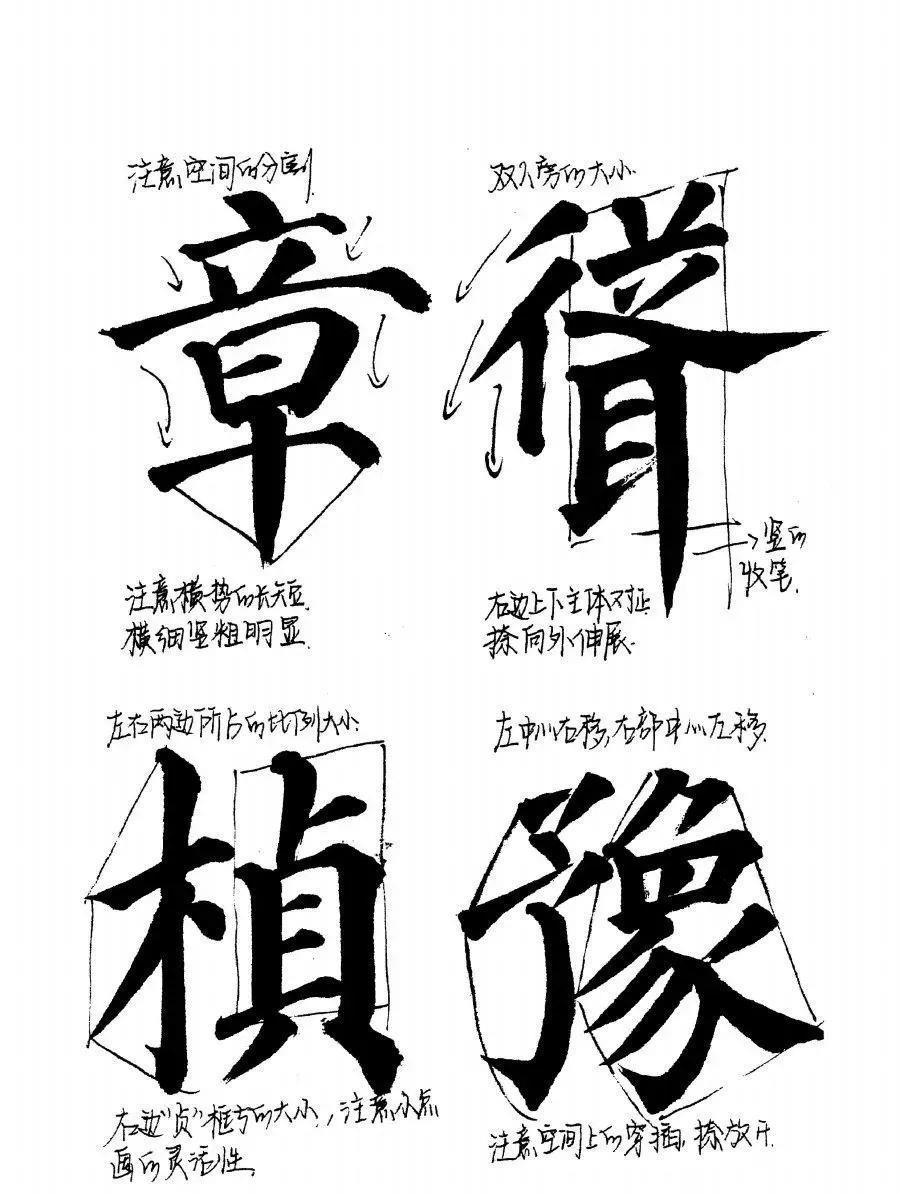 注意空间的分割.
章
注意横势的长短.
横细竖粗明显.
双人房的大小.
聳
竖的
收笔.
右边上下主体对正.
捺向外伸展.
左右两边所占的比例大小.
楨
右边“贞”框的大小,注意小点
画的灵活性.
左中心右移,右部中心左移.
豫
注意空间上的穿插,捺放开.